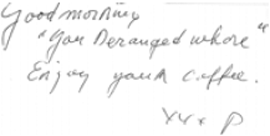 Good morning
"You Deranged whore"
Enjoy your coffee.
xxx P